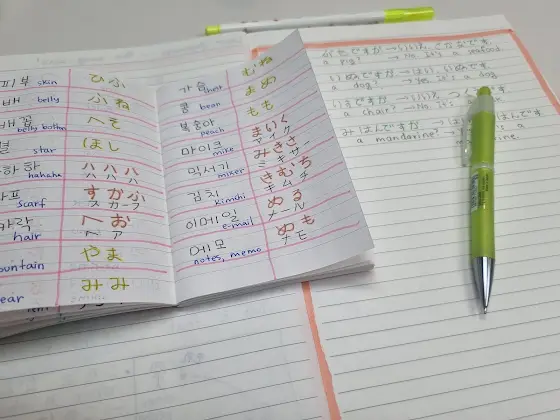 피부 skin ひふ
배 belly ふね
배꼽 belly button へそ
별 star ほし
하하하 hahaha ハハハ
카프 scarf すかふ
スカーフ
카락 hair へお
ヘア
ountain やま
ear みみ
가슴 chest むね
콩 bean まめ
복숭아 peach もも
마이크 mike まいく
マイク
믹서기 mixer みきさ
ミキサー
김치 kimchi きむち
キムチ
이메일 e-mail める
メール
메모 notes, memo めも
メモ
ですか→いいえ、さかなです
a pig? → No it's a seafood
いぬですか→はい、いぬです
a dog? → it's a dog
いすですか→いいえ、つく
a chair? → No it's
ですか →は んです
a mandarine? 's a
rine